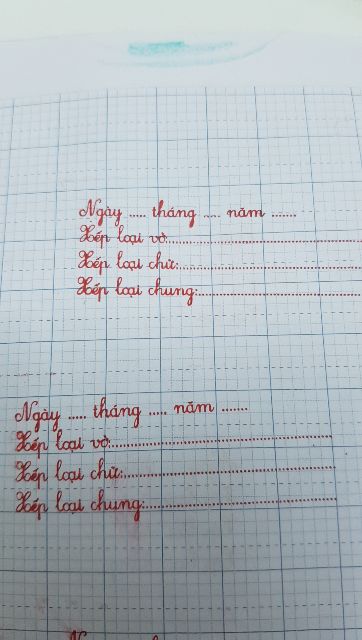 Ngày ..... tháng ..... năm .......
Xếp loại vở:........................................
Xếp loại chữ:........................................
Xếp loại chung:........................................
Ngày ..... tháng ..... năm .......
Xếp loại vở:........................................
Xếp loại chữ:........................................
Xếp loại chung:........................................